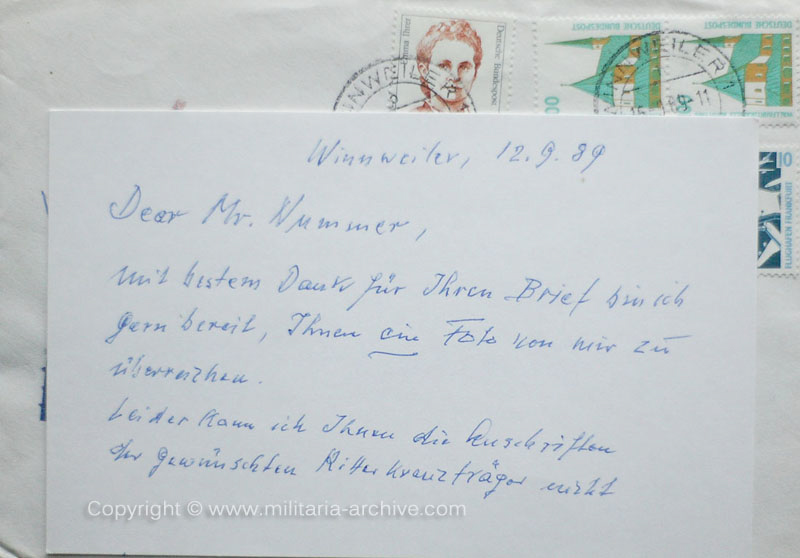 Deutsche Bundespost
DEUTSCHE BUNDESPOST
DEUTSCHE BUNDESPOST
WINNWEILER
WINNWEILER 1
10
FLUGHAFEN FRANKFURT
Winnweiler, 12.9.89
Dear Mr. Nummer,
mit bestem Dank für Ihren Brief bin ich
gern bereit, Ihnen ein Foto von mir zu
überreichen.
Leider kann ich Ihnen die Anschriften
der gewünschten Ritterkreuzträger nicht
Copyright © www.militaria-archive.com